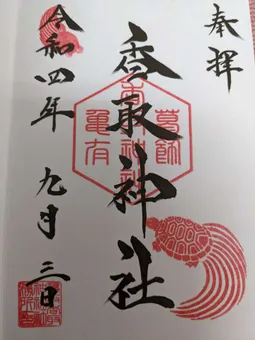 奉拝
香取神社
葛飾
香取神社
亀有
令和四年
九月三日